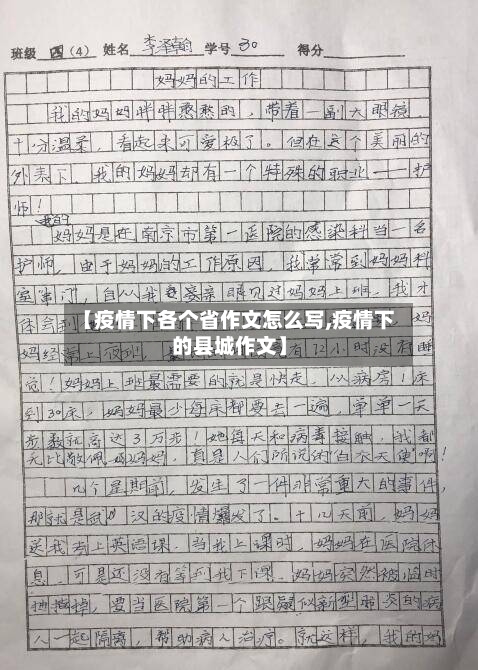 班级 四（4） 姓名 李泽翰 学号 30 得分
妈妈的工作
我的妈妈胖胖憨憨的，带着一副大眼镜，
十分温柔，看起来可爱极了。但在这个美丽的
外表下，我的妈妈却有一个特殊的职业——护
师！
我的
妈妈是在南京市第一医院的感染科当一名
护师，由于妈妈的工作原因，我常常到妈妈科
室串门，自从我亲眼见过妈妈上班，我才
体会到
【疫情下各个省作文怎么写,疫情下
的县城作文】
妈经常上夜班，有12小时没有睡
觉！妈妈上班最需要的就是快走，从病房1床
到30床，妈妈最少每床都要去一遍，单单一天
步数就高达3万步！她每天和病毒接触，我都
无比敬佩妈妈，真是人们所说的"白衣天使"啊！
几个星期前，发生了一件非常重大的事件，
那就是武汉的疫情爆发了。十几天前，妈妈
送我去上英语课，当我上课时，妈妈在医院休
息，可是还没有等到我下课，妈妈突然被临时
要当医院第一个跟疑似新型肺炎的病
人一起隔离，帮助病人治疗。就这样，我的妈